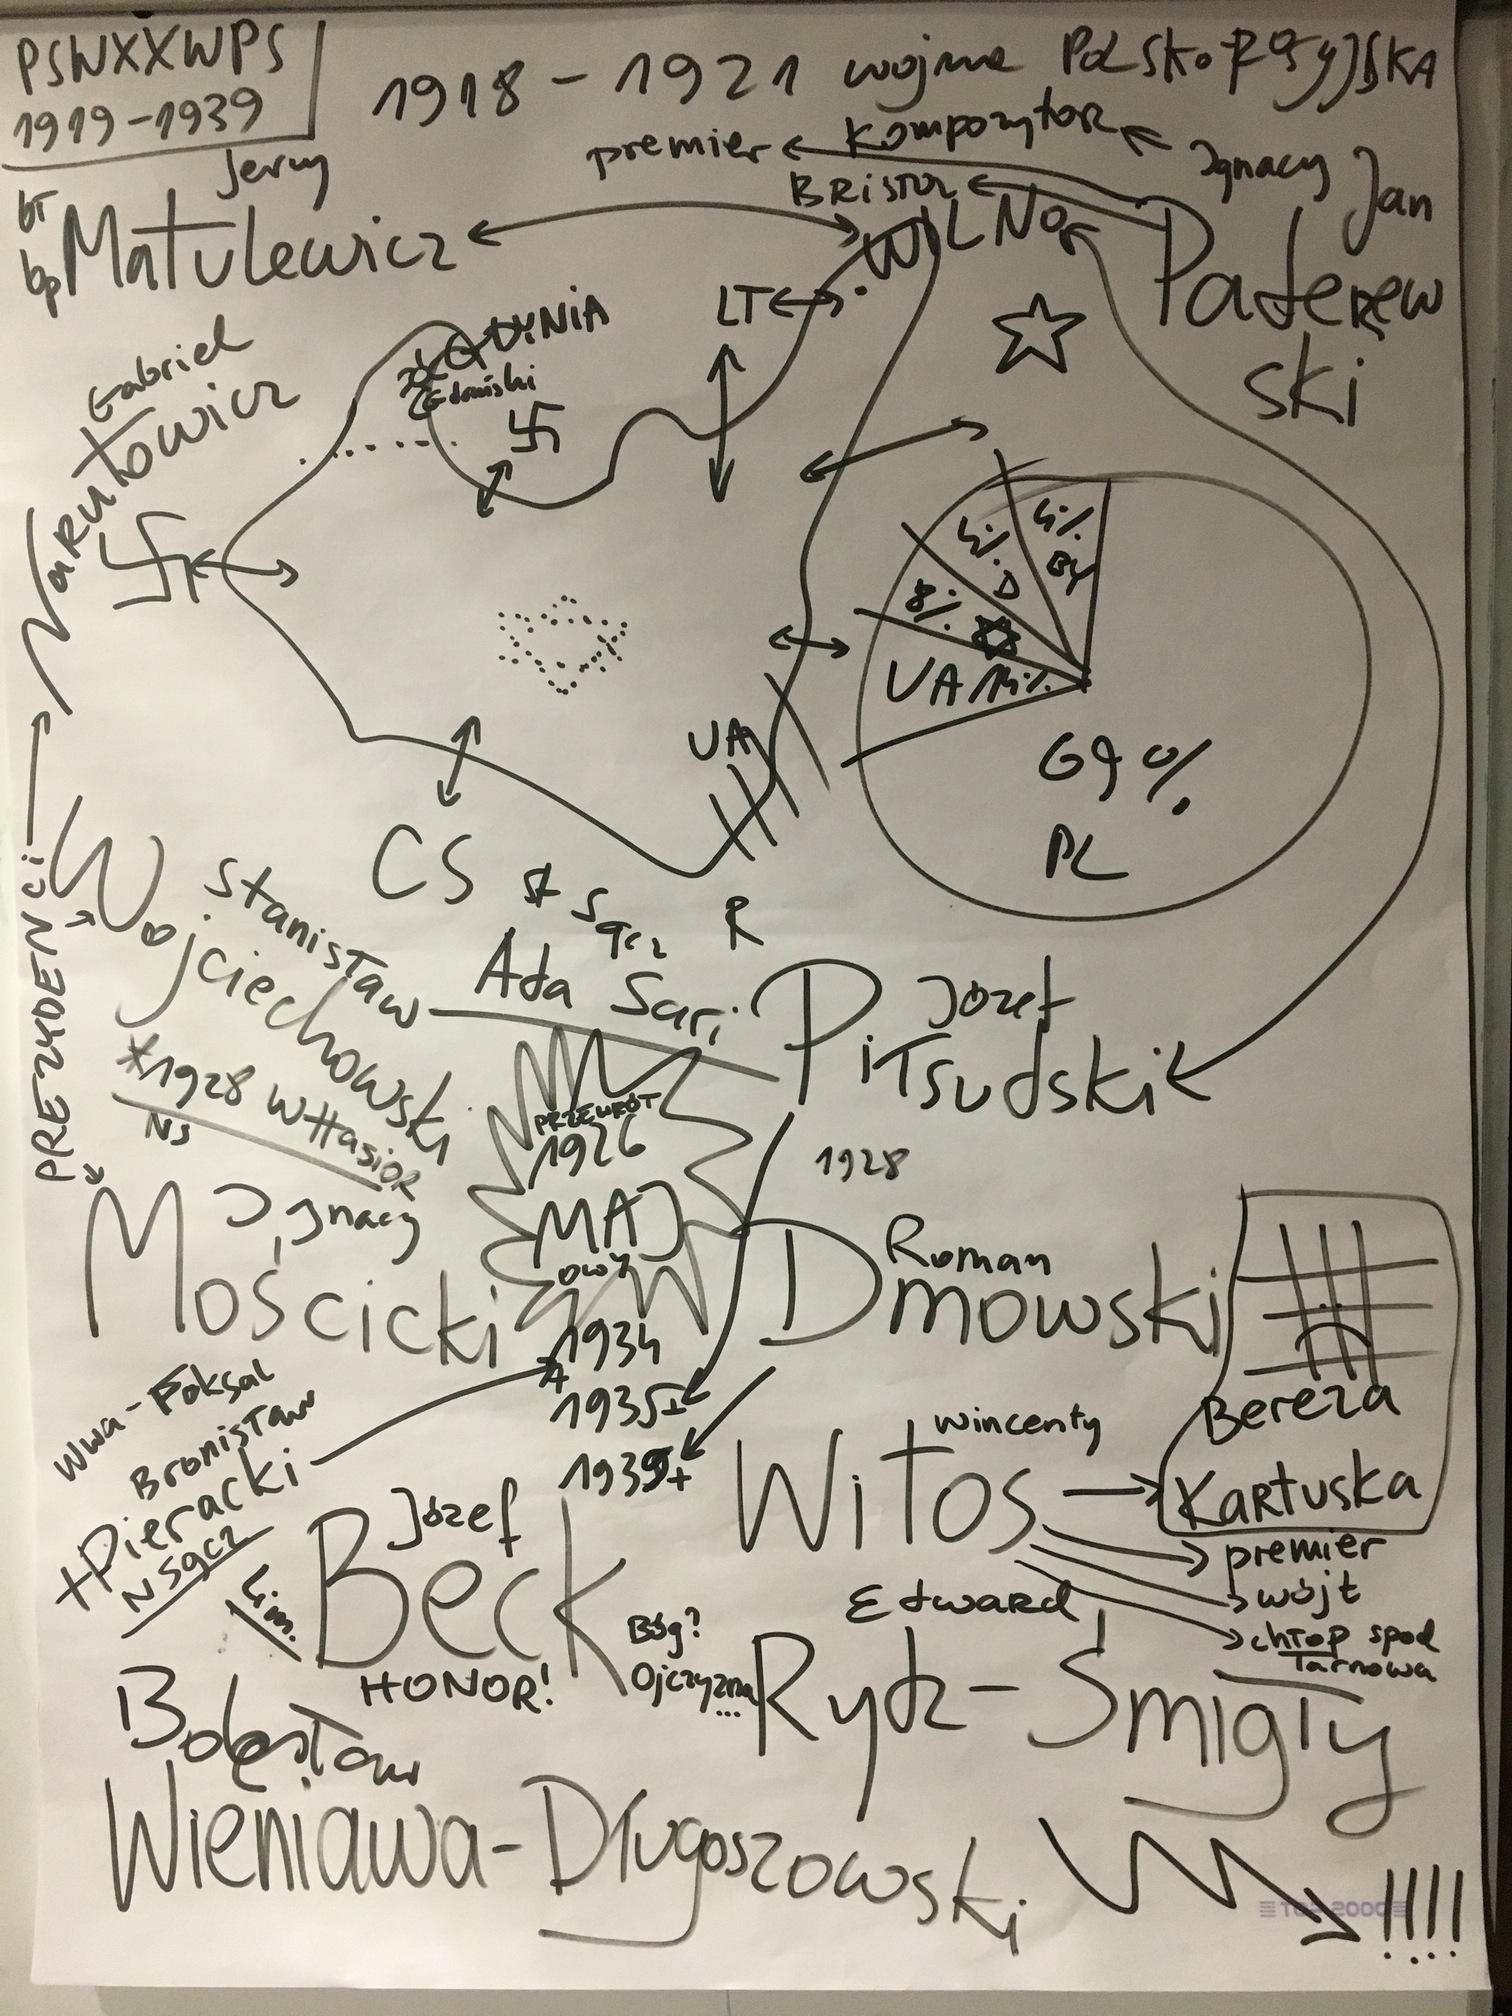 PSWXXWPS
1919-1939
1918-1921 wojna POLSKO-ROSYJSKA
Jerzy
bł
bp Matulewicz
premier
Kompozytor
Ignacy Jan
BRISTOL
WILNO
Paderew
ski
LT
GDYNIA
Gdański
Gabriel
Narutowicz
4% D
4% BY
8%
UA 14%
69%
PL
UA
CS
R
St Sącz
Ada Sari
PREZYDENCI
Stanisław
Wojciechowski
*1928 WHasior
NS
Józef
Piłsudski
PRZEWRÓT
1926
MAJ
OWY
1928
Ignacy
Mościcki
Roman
Dmowski
1934
1935+
1939+
Wwa-Foksal
Bronisław
+Pieracki
N Sącz
Bereza
Kartuska
Wincenty
Witos
premier
wójt
chłop spod
Tarnowa
Lim.
Józef
Beck
HONOR!
Bóg?
Ojczyzna
...
Edward
Rydz-Śmigły
Bolesław
Wieniawa-Długoszowski
!!!!